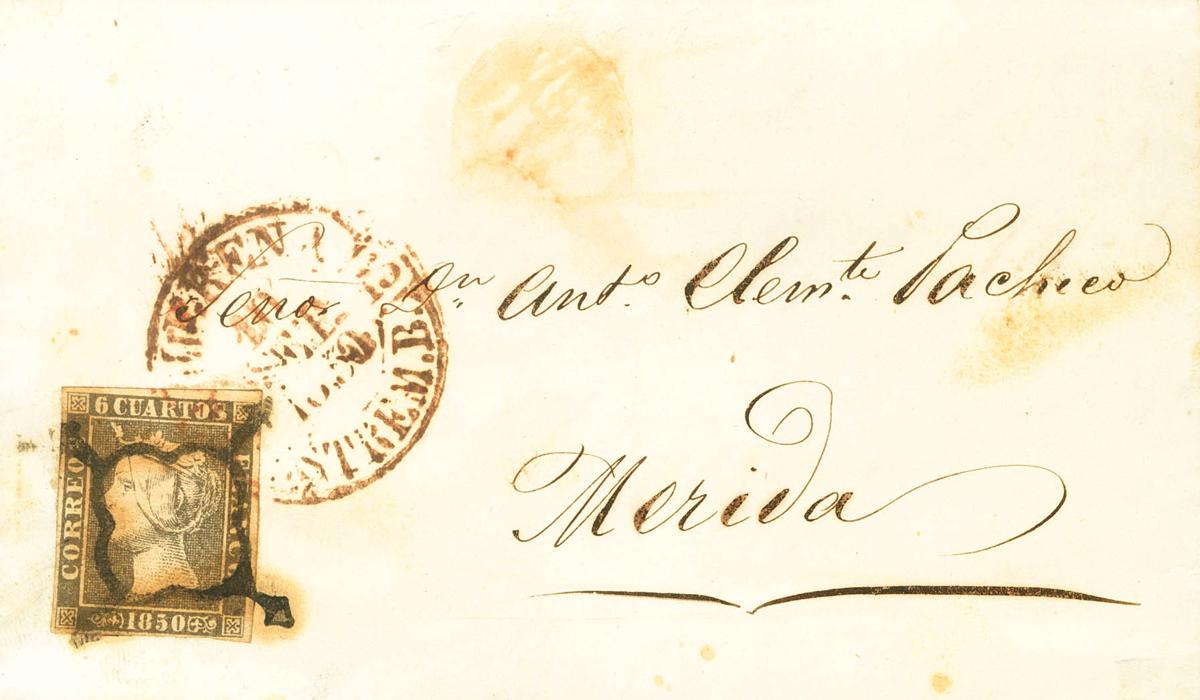 Señor Dn Anto Clemte Pacheco
Merida
EXTREM. B
1850
6 CUARTOS
CORREOS
FRANCO
1850